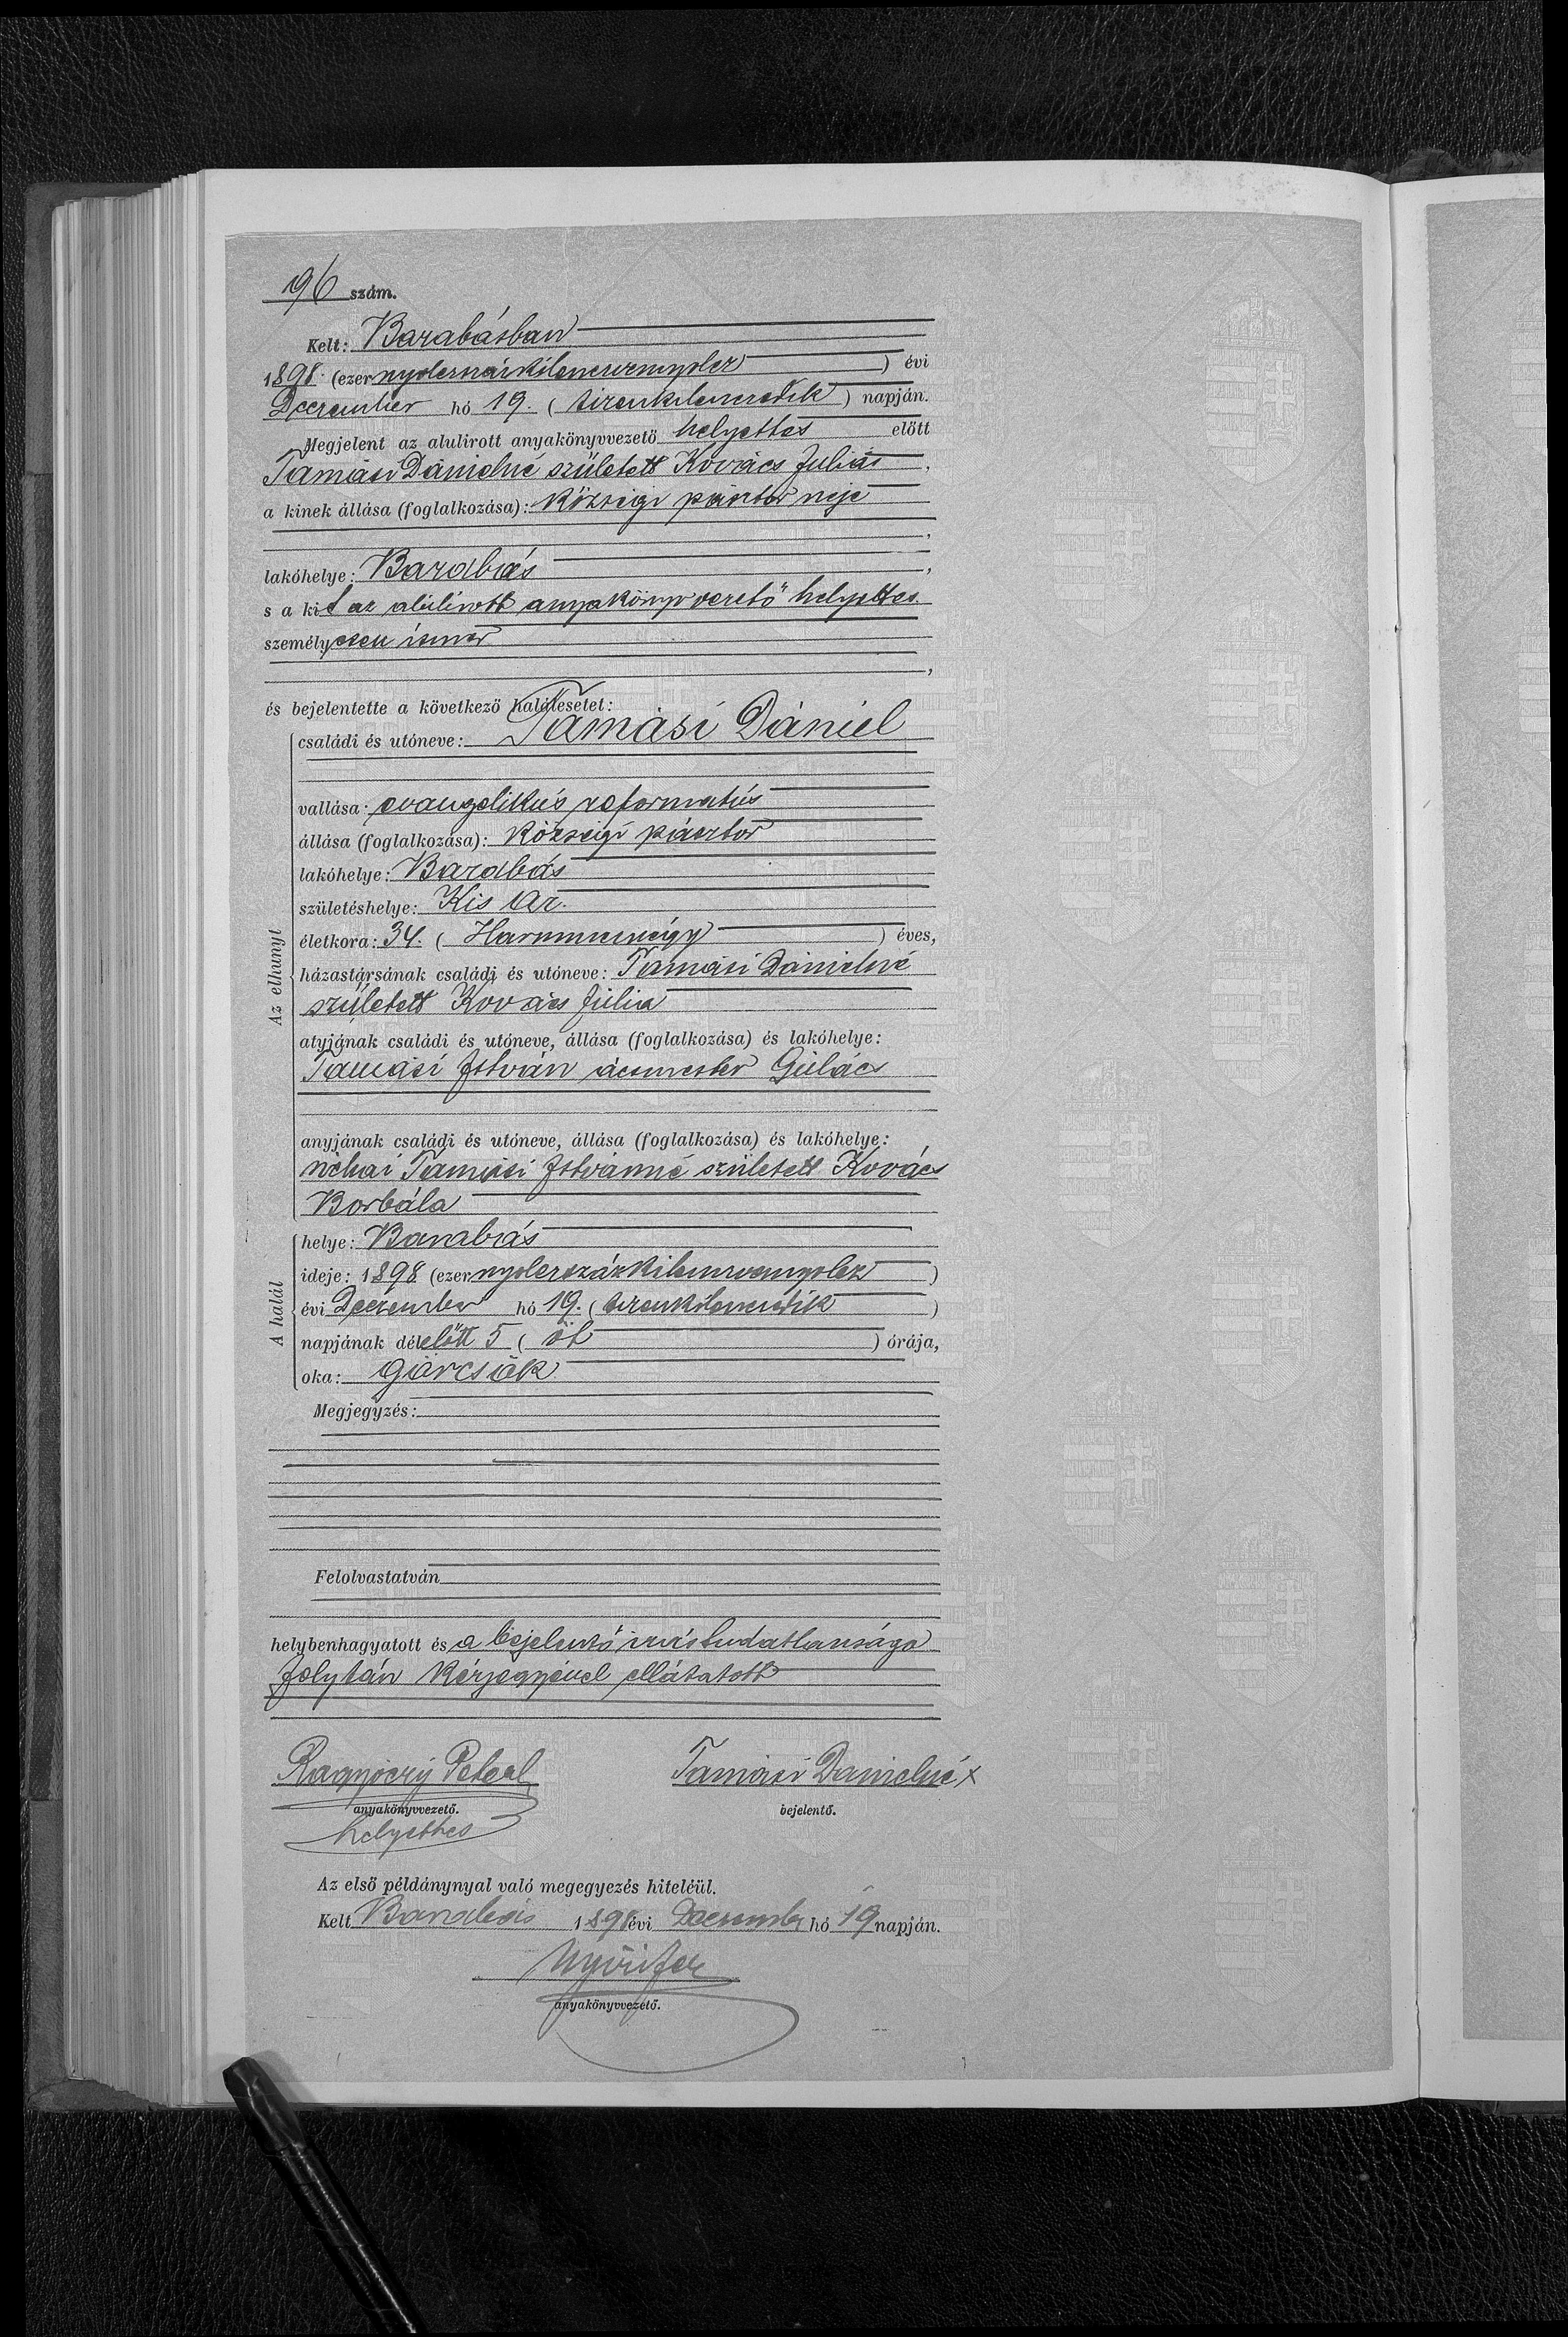 196 szám.
Kelt: Barabásban
1898. (ezer nyolcszázkilencvennyolcz) évi
December hó 19. (tizenkilenczedik) napján.
Megjelent az alulirott anyakönyvvezető helyettes előtt
Tamási Dánielné született Kovács Juliás,
a kinek állása (foglalkozása): Községi pásztor neje
,
lakóhelye: Barabás,
s a kit az alúlirott anyakönyvvezető helyettes
személyesen ismer
,
és bejelentette a következő halálesetet:
családi és utóneve: Tamási Dániel
vallása: evangelikús reformatús
állása (foglalkozása): Községi pásztor
lakóhelye: Barabás
születéshelye: Kis Ar.
életkora: 34. (Harmincnégy) éves,
Az elhunyt
házastársának családi és utóneve: Tamási Dánielné
született Kovács Júlia
atyjának családi és utóneve, állása (foglalkozása) és lakóhelye:
Tamási István ácsmester Gulács
anyjának családi és utóneve, állása (foglalkozása) és lakóhelye:
néhai Tamási Istvánné született Kovács
Borbála
helye: Barabás
ideje: 1898 (ezer nyolcszázkilencvennyolcz)
A halál
évi December hó 19. (tizenkilenczedik)
napjának délelőtt 5 (öt) órája,
oka: Görcsök
Megjegyzés:
Felolvastatván
helybenhagyatott és a bejelentő irástudatlansága
folytán kézjegyével ellátatott
Tamási Danielné x
anyakönyvvezető. bejelentő.
helyettes
Az első példánynyal való megegyezés hiteléül.
Kelt Barabás 1898 évi December hó 19 napján.
anyakönyvvezető.